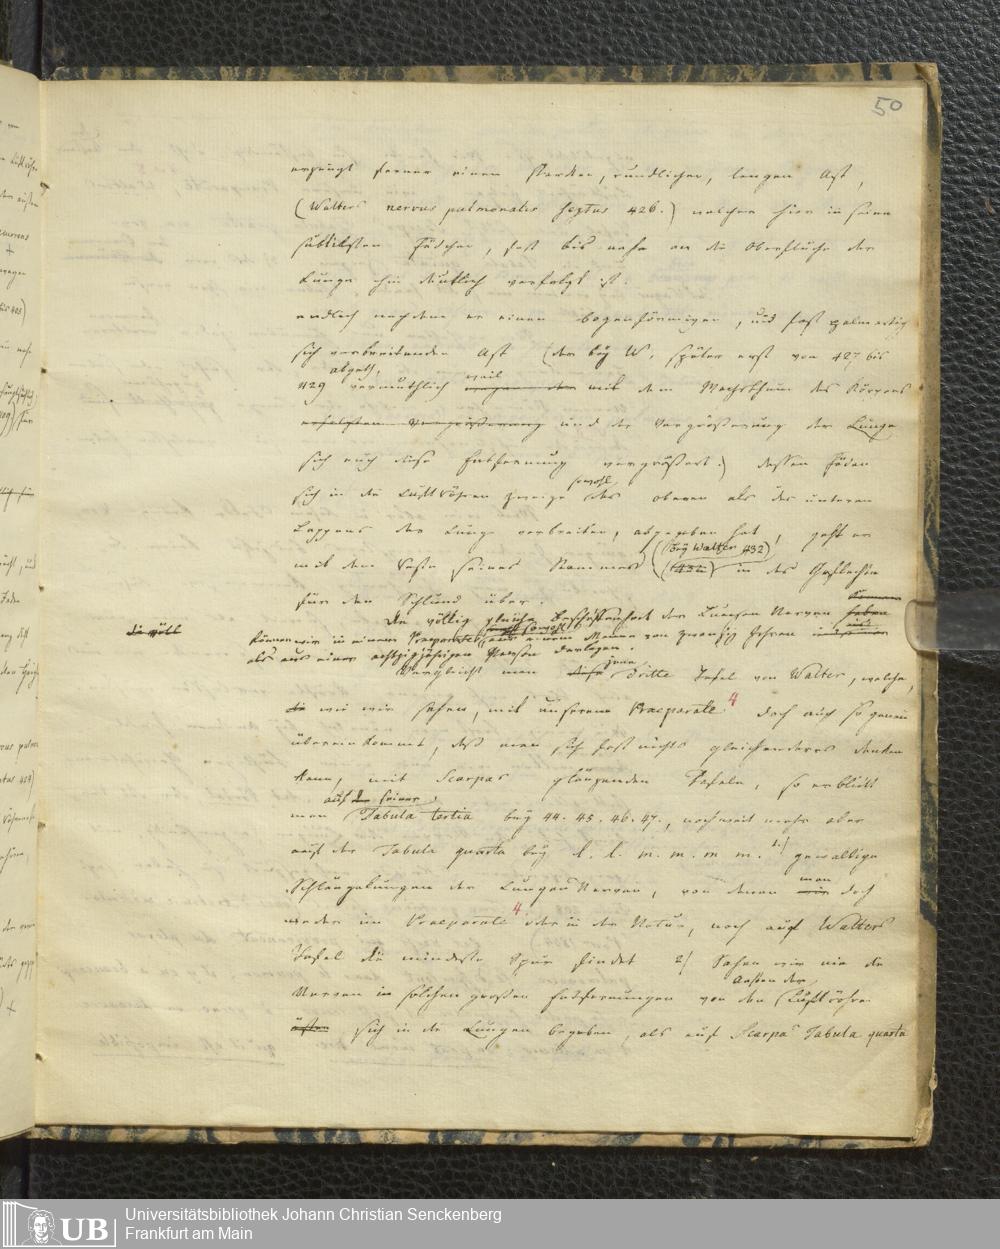 50
erzeugt ferner einen starken, rundlichen, langen Ast,
(Walters nervus pulmonalis Septus 426.) welcher hier in seinen
subtilsten Fädchen, fast bis nahe an die Oberfläche der
Lunge hin deutlich verfolgt ist.
endlich nachdem er einen bogenförmigen, und fast palmartig
sich verbreitenden Ast (der bey W. später erst von 427 bis
abgeth,
429 vermuthlich weil mit dem Wachsthum des Körpers
und der Vergrößerung der Lunge
sich auch diese Entfernung vergrößert.) dessen Fäden
sich in die Luftröhren zweige sowohl des oberen als des unteren
Lappens der Lunge verbreiten, abgegeben hat, geht er
mit dem Reste seines Stammes (bey Walter 432) in das Geflechte
für den Schlund über.
die völl
Die völlig gleiche Beschaffenheit der Lungen Nerven
können wir in einem Praeparate sowohl aus einem Manne von zwanzig Jahren
als aus einer achtzigjährigen Person darlegen.
Vergleicht man jene dritte Tafel von Walter, welche,
wie wir sahen, mit unserem Praeparate 4 doch auch so genau
übereinkommt, daß man sich fast nichts gleichenderes denken
kann, mit Scarpas glänzenden Tafeln, so erblickt
man auf seiner Tabula tertia bey 44. 45. 46. 47., noch weit mehr aber
auf der Tabula quarta bey l. l. m. m. m m. 1.) gewaltige
Schlängelungen der Lungen Nerven, von denen man doch
weder im Praeparate 4 oder in der Natur, noch auf Walters
Tafel die mindeste Spur findet 2) Sahen wir nie die
Nerven in solchen großen Entfernungen von den Aesten der Luftröhre
sich in die Lungen begeben, als auf Scarpa's Tabula quarta
UB
Universitätsbibliothek Johann Christian Senckenberg
Frankfurt am Main